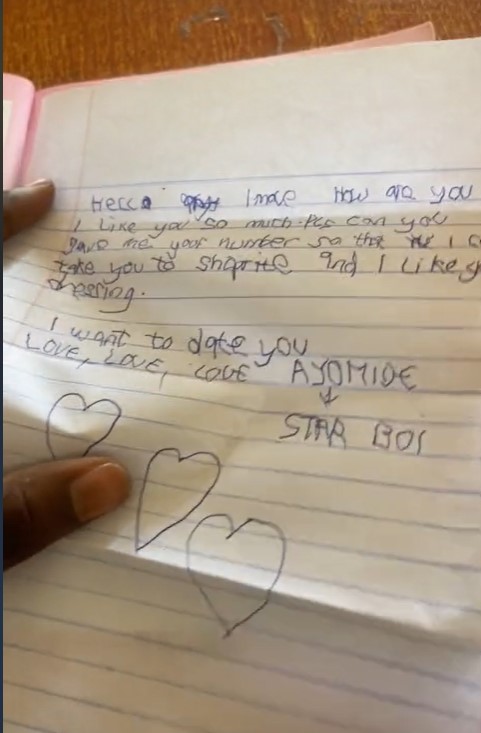 Hello Imole How are you
I Like you so much. Pls can you
gave me your number so that I c
take you to shoprite and I Like y
dressing.
I want to date you
LOVE, LOVE, LOVE AYOMIDE
↓
STAR BOI